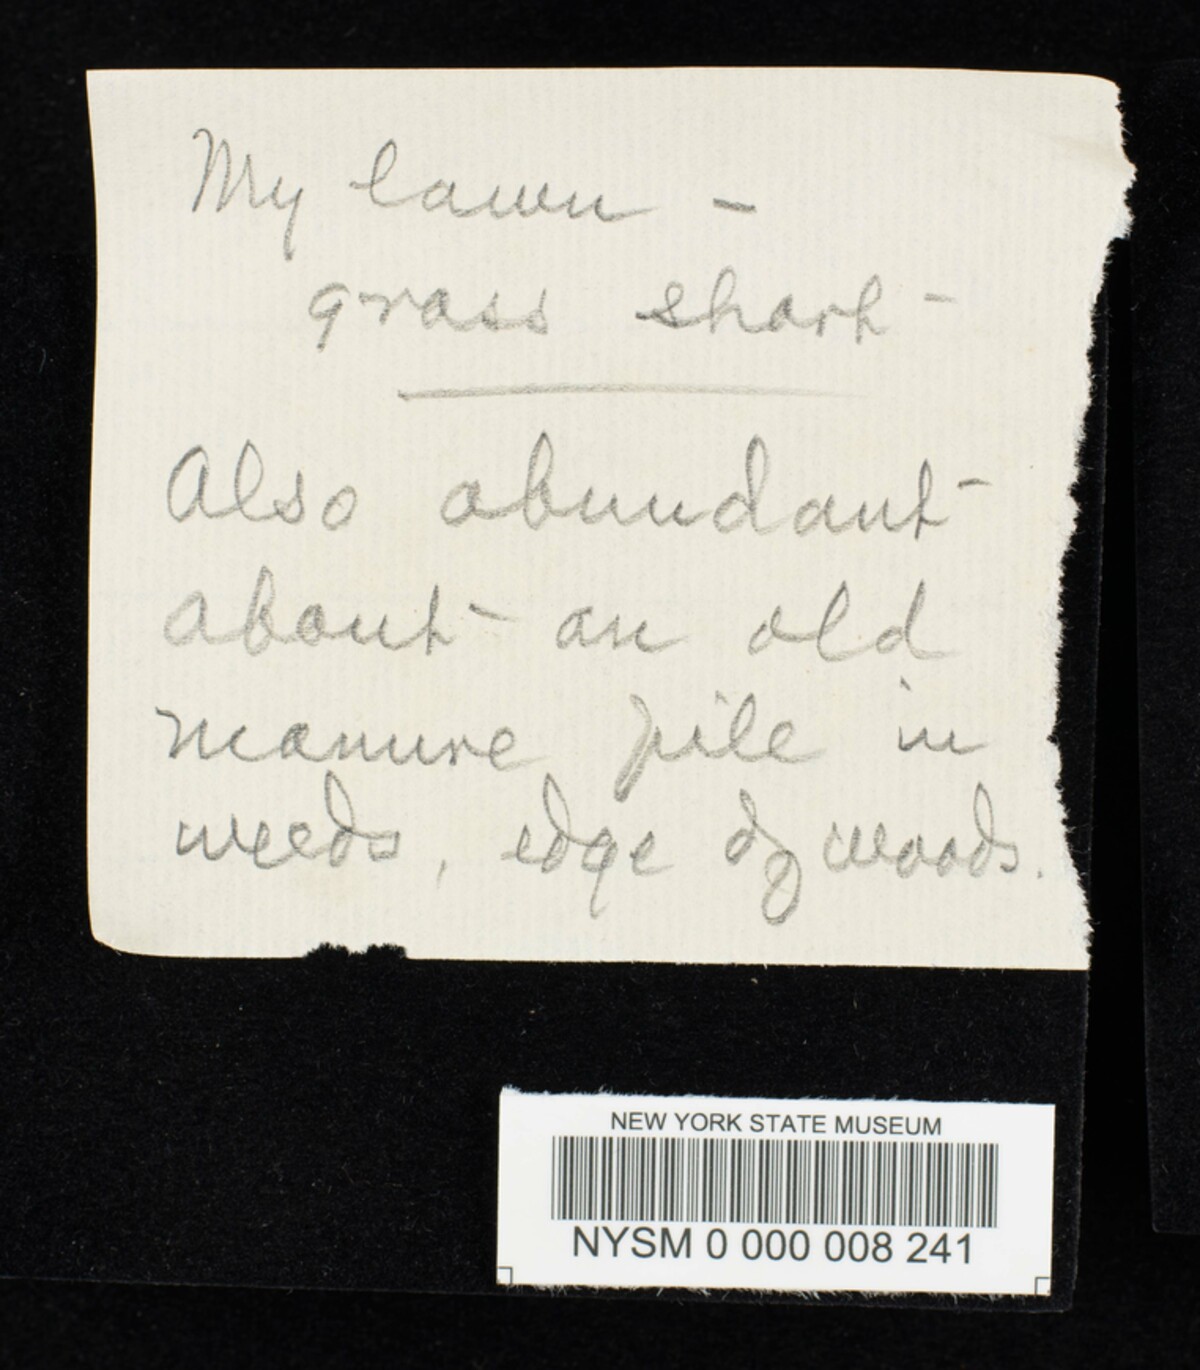 My lawn –
grass short
Also abundant
about an old
manure pile in
weeds, edge of woods.
NEW YORK STATE MUSEUM
NYSM 0 000 008 241